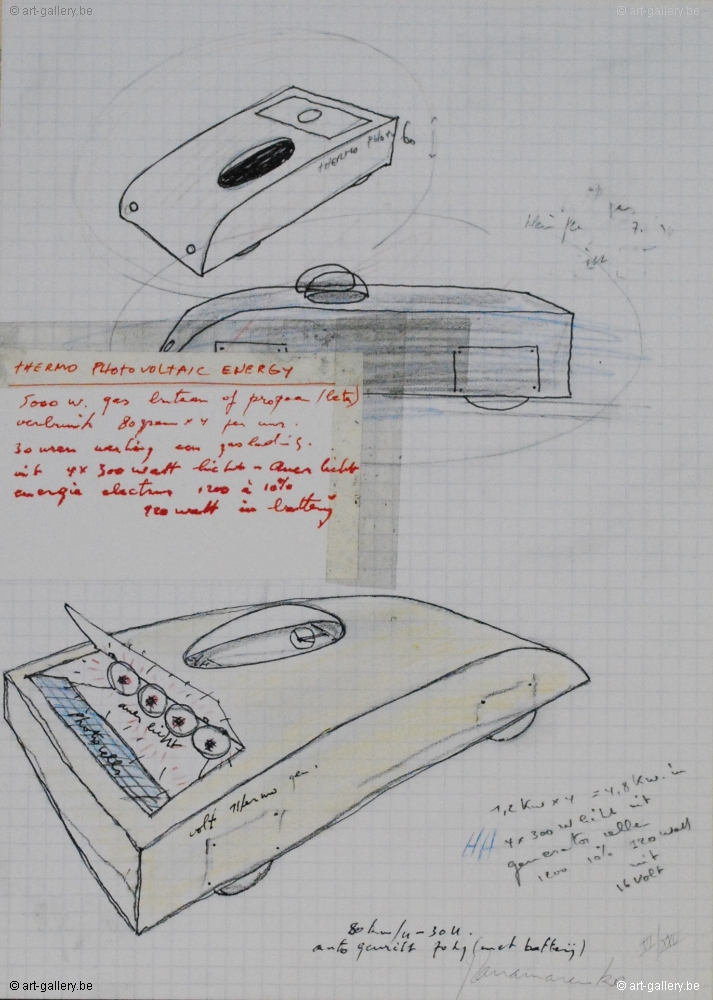 © art-gallery.be
© art-gallery.be
THERMO PHOTO
60
THERMO PHOTOVOLTAIC ENERGY
5000 w. gas butaan of propaan
verbruik 80 gram x 4 per uur.
30 uren werking een gaslading.
uit 4 x 300 watt licht = Auer licht
energie electrus 1200 à 10%
120 watt in battery
auer licht
Photocells
volt Thermo gen.
1,2 Kw x 4 = 4,8 Kw. in
HH 4 x 300 w licht uit
generator cellen
1200 10% 120 watt
uit
16 volt
80 km/u - 30 u.
auto gewicht 70 kg (met batterij)
Panamarenko
© art-gallery.be
© art-gallery.be